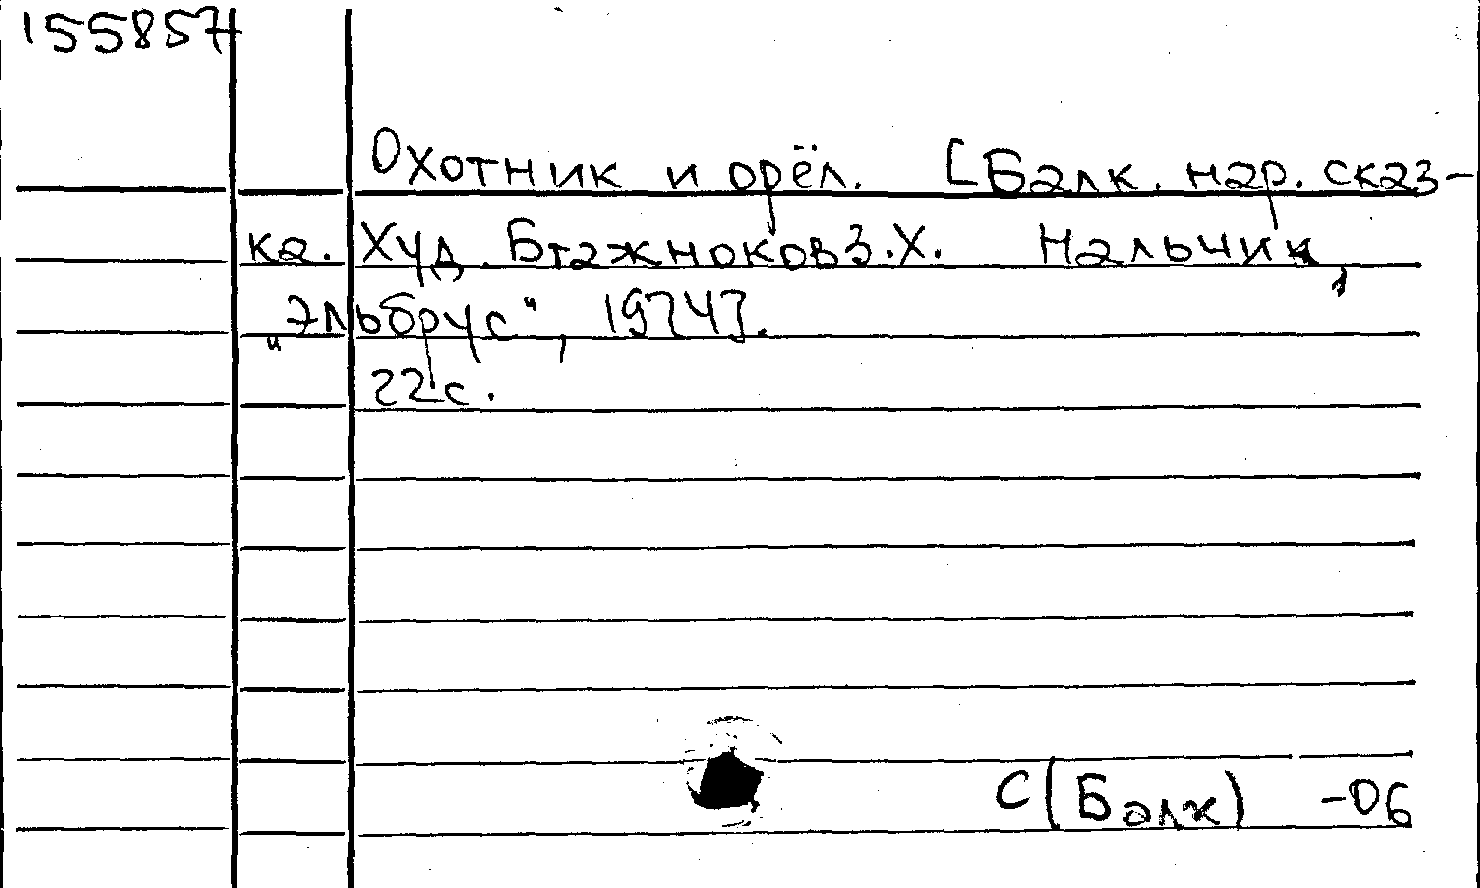 155857
Охотник и орёл. [Балк. нар. сказ-
ка. Худ. Бгажноков З.Х. Нальчик,
„Эльбрус“, 1974].
22с.
С(Балк) -06